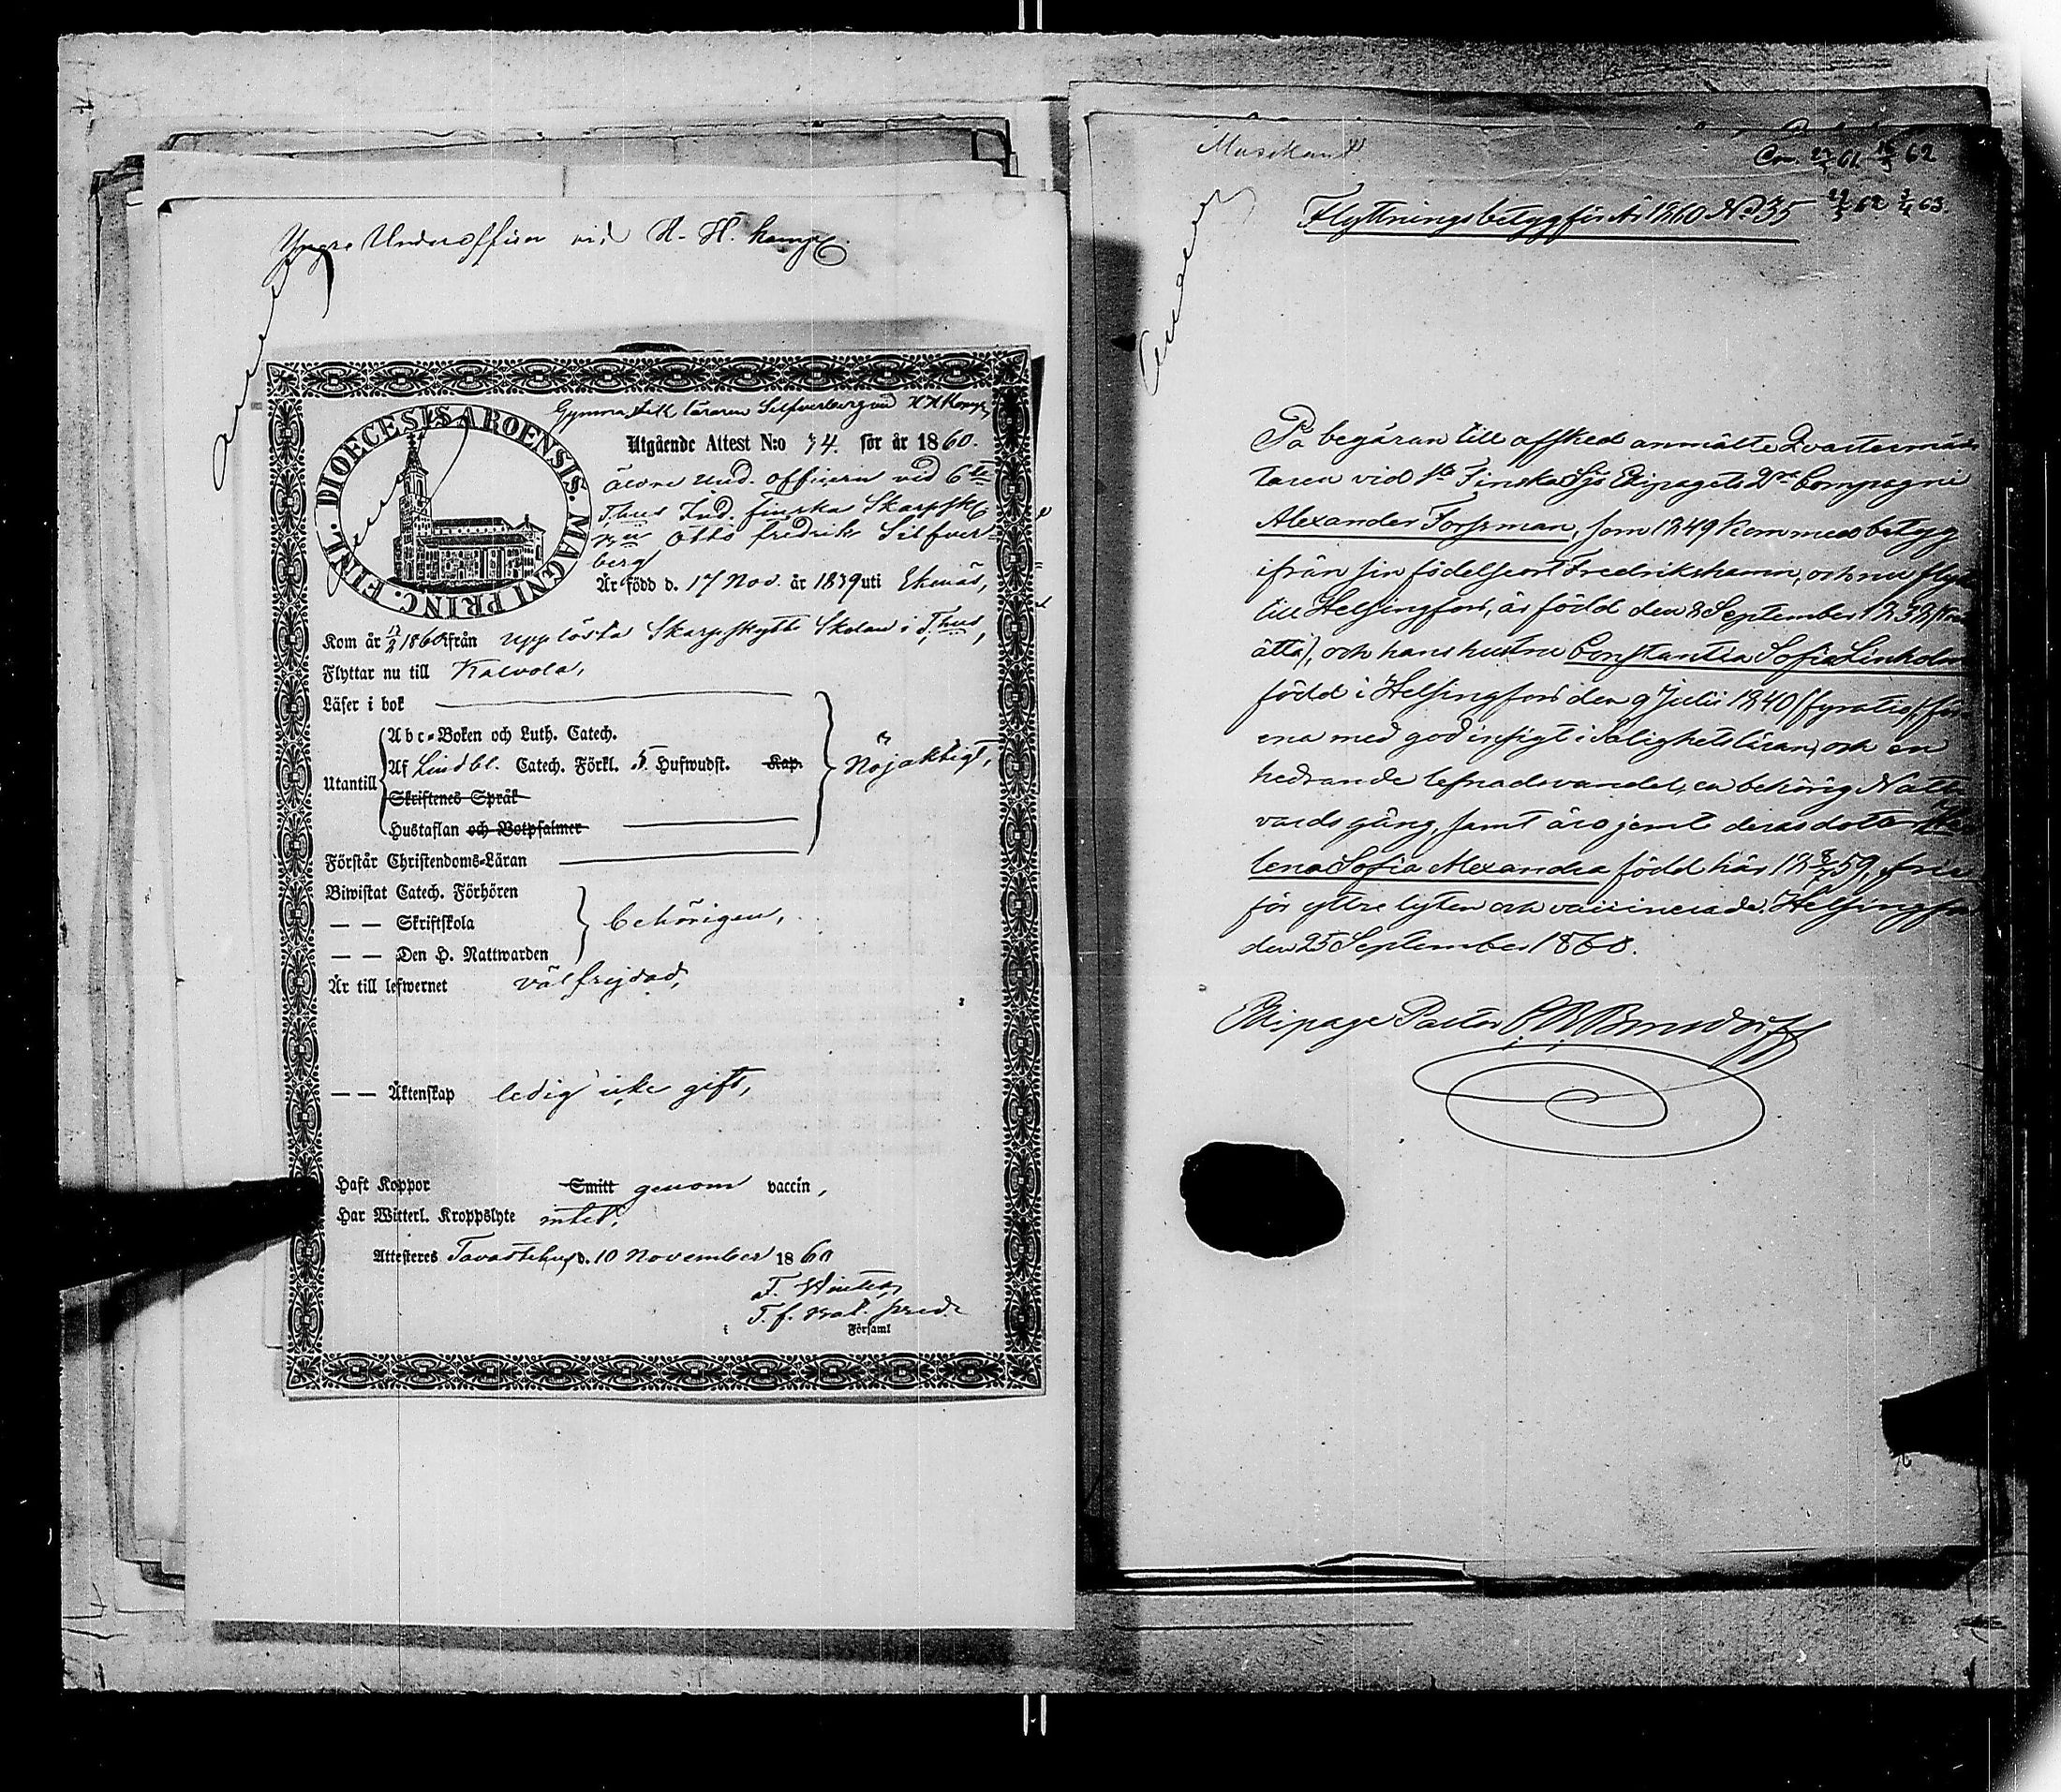 Yngre Underofficer vid H. H. Komp.
DIOECESIS AROENSIS. MAGNI PRINC. FINL.
Gymnastik läraren Silfverberg vid H H Komp.
Utgående Attest N:o 74. för år 1860.
äldre Und. officern vid 6te
T:hus Ind. finska Skarpsk
Otto Fredrik Silfver-
berg
Är född d. 17 Nov. år 1839 uti Ekenäs,
Kom år 1860 från upplösta Skarpskytte Skolan i T:hus,
Flyttar nu till Kalvola,
Läser i bok
Utantill
Abc-Boken och Luth. Catech.
Af Lindbl. Catech. Förkl. 5 Hufwudst. Kap.
Nöjaktigt,
Skriftenes Språk
Hustaflan och Botpsalmer
Förstår Christendoms-Läran
Biwistat Catech. Förhören
— — Skriftskola
behörigen,
— — Den H. Nattwarden
Är till lefwernet välfrejdad,
— — Äktenskap ledig icke gift,
Haft Koppor Smitt genom vaccin,
Har Witterl. Kroppslyte intet,
Attesteres Tavastehus d. 10 November 1860
T. f.
i Församl
Musikant
Flyttningsbetyg för År 1860 No 35
På begäran till afsked anmälte Qvartermäs
taren vid 1a Finska Sjö Ekipagets 2dra Compagni
Alexander Forssman, som 1849 kom med betyg
ifrån sin födelseort Fredrikshamn, och nu flyt
till Helsingfors, är född den 8 September 1838
åtta), och hans hustru Constantia Sofia Lindholm
född i Helsingfors den 9 Julii 1840 (fyratio), för
ena med god insigt i Salighetsläran, och en
hedrande lefnadsvandel, en behörig Natt
vards gång, samt äro jemte deras dotter He
lena Sofia Alexandra född här 18 59, fria
för yttre lyten och vaccinerade. Helsingfors
den 25 September 1860.
Ekipage Pastor